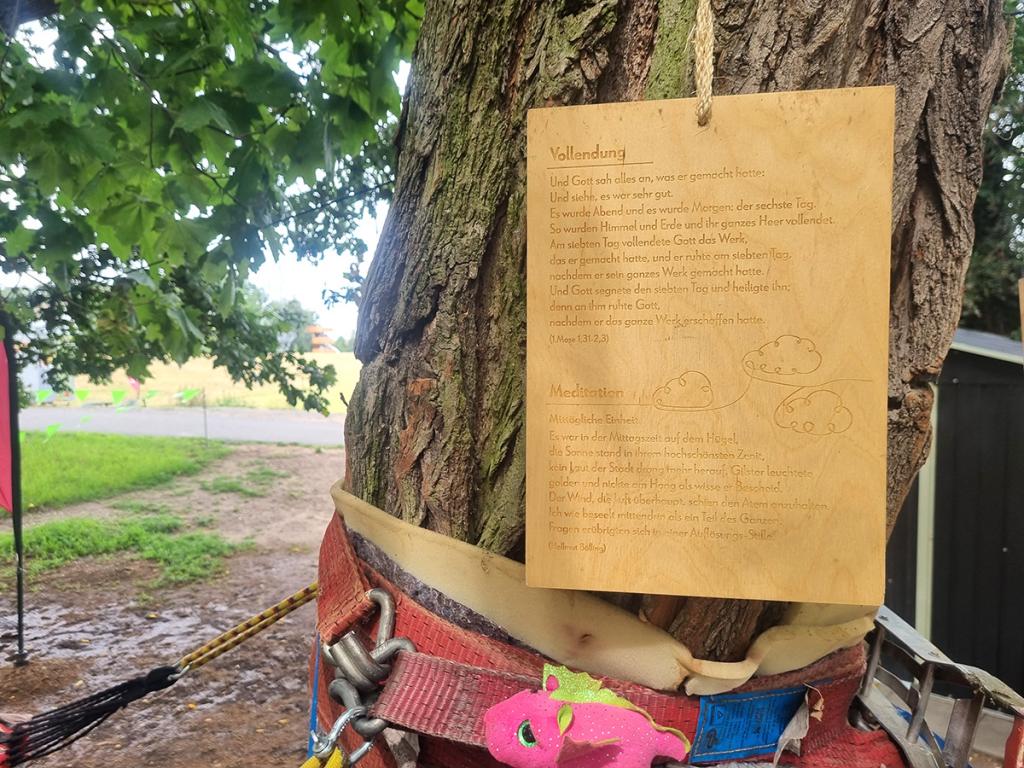 Vollendung
Und Gott sah alles an, was er gemacht hatte:
Und siehe, es war sehr gut.
Es wurde Abend und es wurde Morgen: der sechste Tag.
So wurden Himmel und Erde und ihr ganzes Heer vollendet.
Am siebten Tag vollendete Gott das Werk,
das er gemacht hatte, und er ruhte am siebten Tag,
nachdem er sein ganzes Werk gemacht hatte.
Und Gott segnete den siebten Tag und heiligte ihn;
denn an ihm ruhte Gott,
nachdem er das ganze Werk erschaffen hatte.
(1.Mose 1,31-2,3)
Meditation
Mittägliche Einheit:
Es war in der Mittagszeit auf dem Hügel,
die Sonne stand in ihrem hochschönsten Zenit,
kein Laut der Stadt drang mehr herauf, Gilster leuchtete
golden und nickte am Hang als wisse er Bescheid.
Der Wind, die Luft überhaupt, schien den Atem anzuhalten.
Ich wie beseelt mittendrin als ein Teil des Ganzen.
Fragen erübrigten sich in einer Auflösungs-Stille.
(Hellmut Bölling)